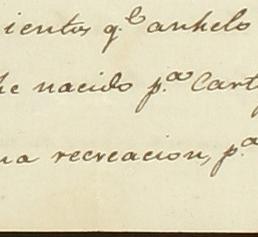 ientos q.e anhelo
he nacido p.a Cart
na recreacion, p.a